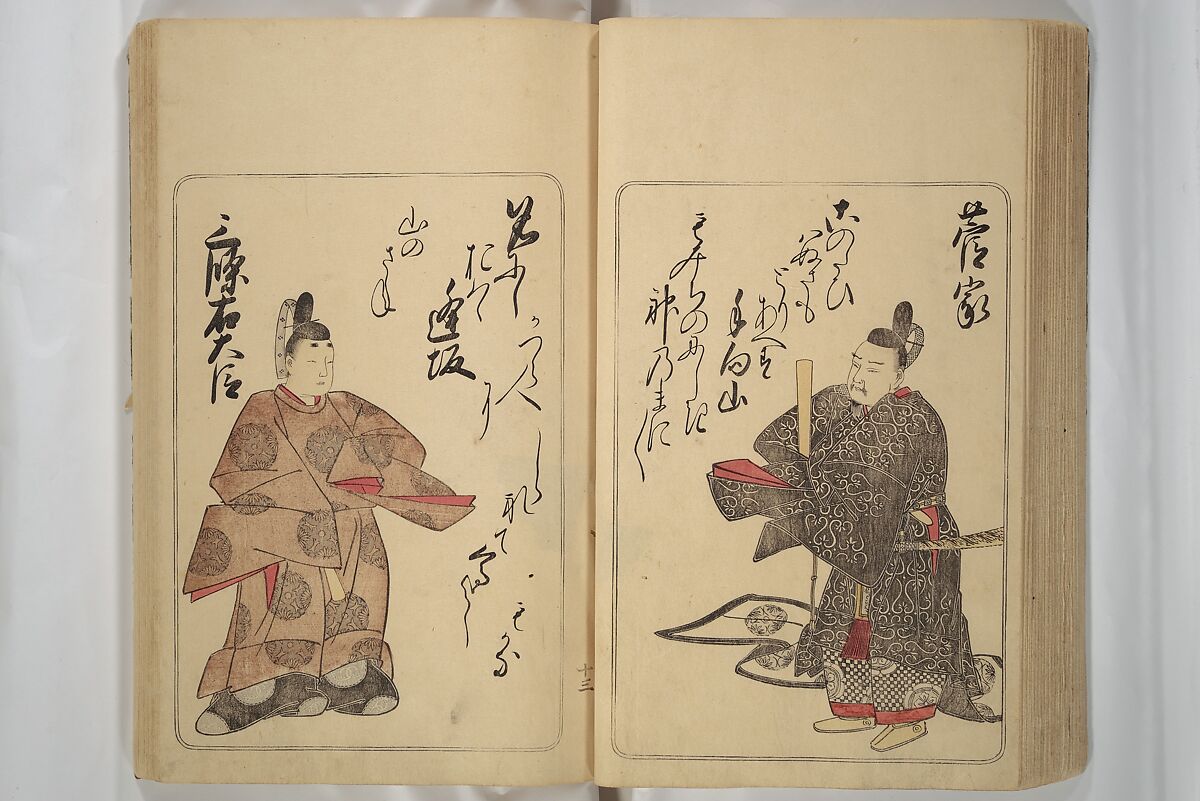 菅家
このたひ
ハぬさも
とりあへす
手向山
もみちのにしき
神乃まに〱
名にし
おはゝ
逢坂
山の
さね
かつら人
に
しら
れて
くるよし
もかな
三條右大臣
十三